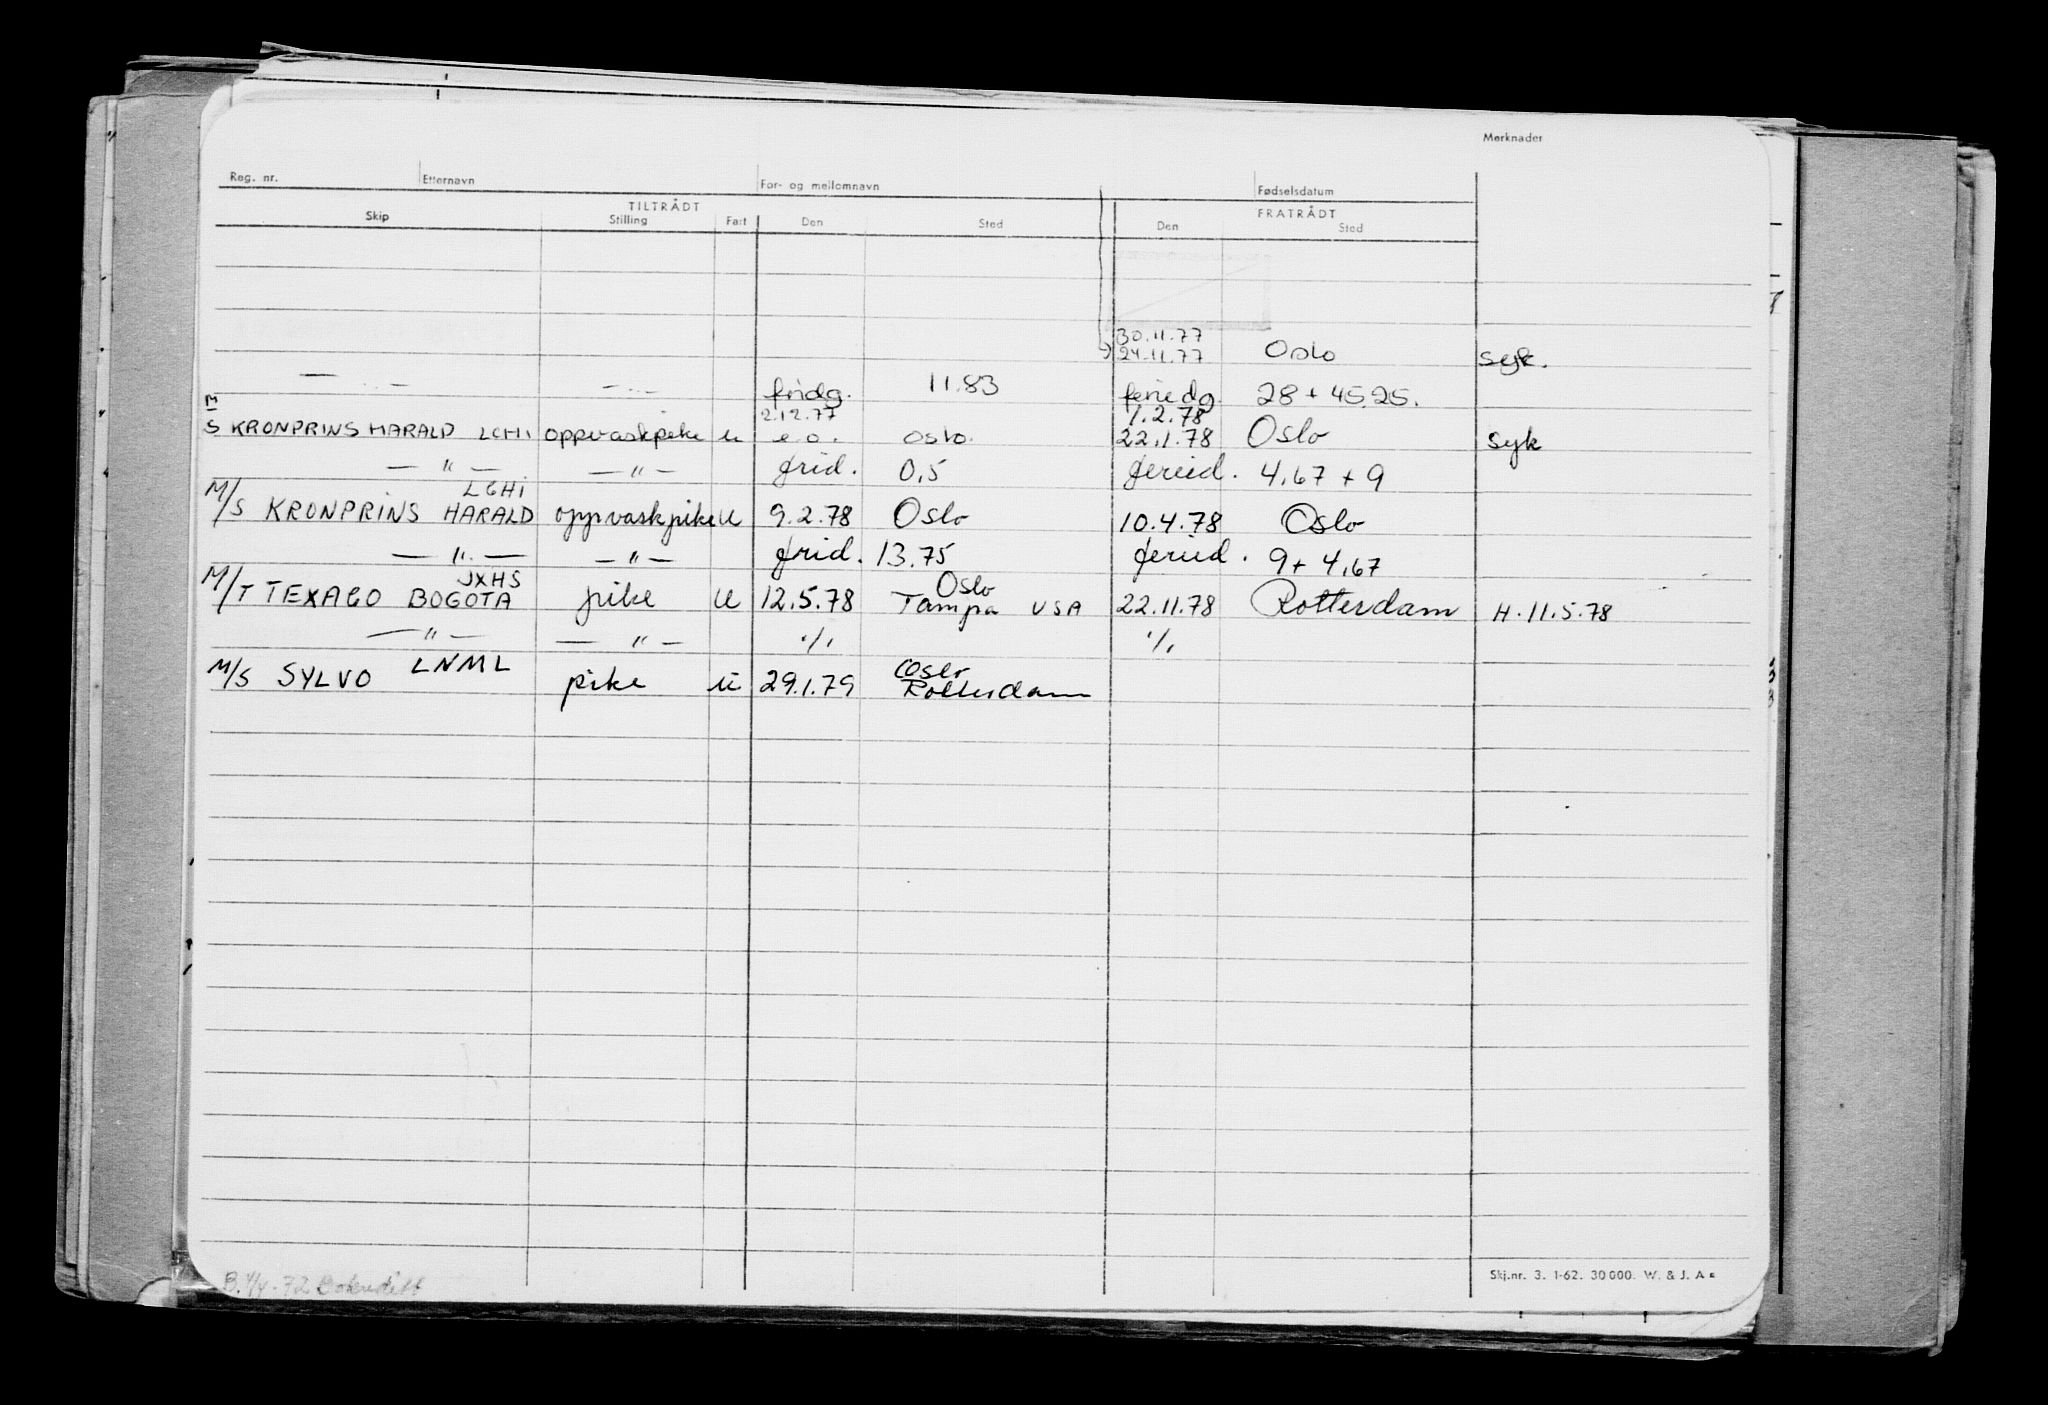 Merknader
Reg. nr. Etternavn For- og mellomnavn Fødselsdatum
TILTRÅDT FRATRÅDT
Skip Stilling Fart Den Sted Den Sted
30.11.77
24.11.77 Oslo syk.
— " — — " — fridg. 11.83 feriedg. 28 + 45.25.
2.12.77 1.2.78
S KRONPRINS HARALD LCHI oppvaskpike u e.o. Oslo. 22.1.78 Oslo syk
— " — — " — frid. 0,5 feried. 4,67 + 9
LCHI
M/S KRONPRINS HARALD oppvaskpike U 9.2.78 Oslo 10.4.78 Oslo
— " — — " — frid. 13.75 feried. 9 + 4,67
JXHS Oslo
M/T TEXACO BOGOTA pike U 12.5.78 Tampa USA 22.11.78 Rotterdam H. 11.5.78
— " — — " — ·/· ·/·
LNML Oslo
M/S SYLVO pike u 29.1.79 Rotterdam
Skj.nr. 3. 1-62. 30000. W. & J. A